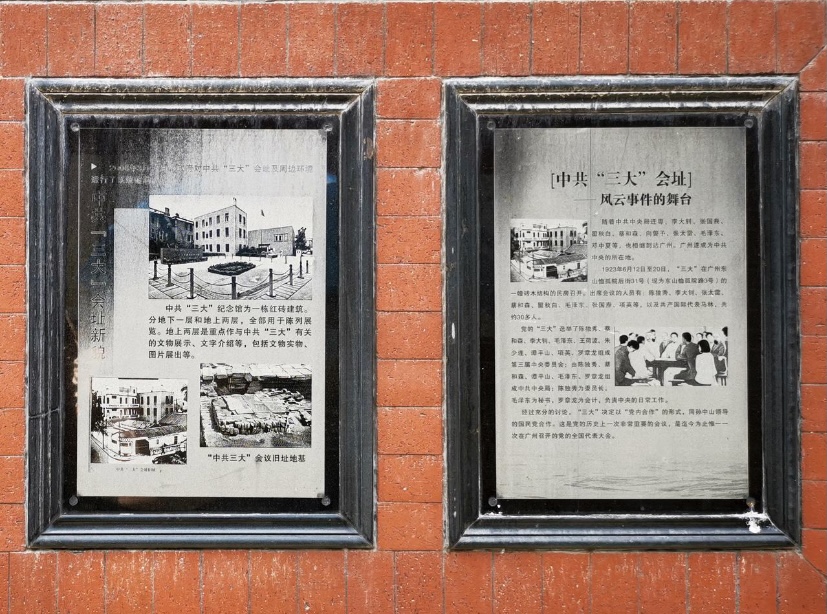 对中共“三大”会址及周边环境
“三大”会址新
中共“三大”纪念馆为一栋红砖建筑。
分地下一层和地上两层，全部用于陈列展
览。地上两层是重点作与中共“三大”有关
的文物展示、文字介绍等，包括文物实物、
图片展出等。
“中共三大”会议旧址地基
[中共“三大”会址]
风云事件的舞台
随着中共中央局迁粤，李大钊、张国焘、
瞿秋白、蔡和森、向警予、张太雷、毛泽东、
邓中夏等，也相继到达广州，广州遂成为中共
中央的所在地。
1923年6月12日至20日，“三大”在广州东
山恤孤院后街31号（现为东山恤孤院路3号）的
一幢砖木结构的民房召开。出席会议的人员有：陈独秀、李大钊、张太雷、
蔡和森、瞿秋白、毛泽东、张国焘、项英等，以及共产国际代表马林，共
约30多人。
党的“三大”选举了陈独秀、蔡
和森、李大钊、毛泽东、王荷波、朱
少连、谭平山、项英、罗章龙组成
第三届中央委员会；由陈独秀、蔡
和森、谭平山、毛泽东、罗章龙组
成中共中央局；陈独秀为委员长，
毛泽东为秘书，罗章龙为会计，负责中央的日常工作。
经过充分的讨论，“三大”决定以“党内合作”的形式，同孙中山领导
的国民党合作。这是党的历史上一次非常重要的会议，是迄今为止惟一一
次在广州召开的党的全国代表大会。